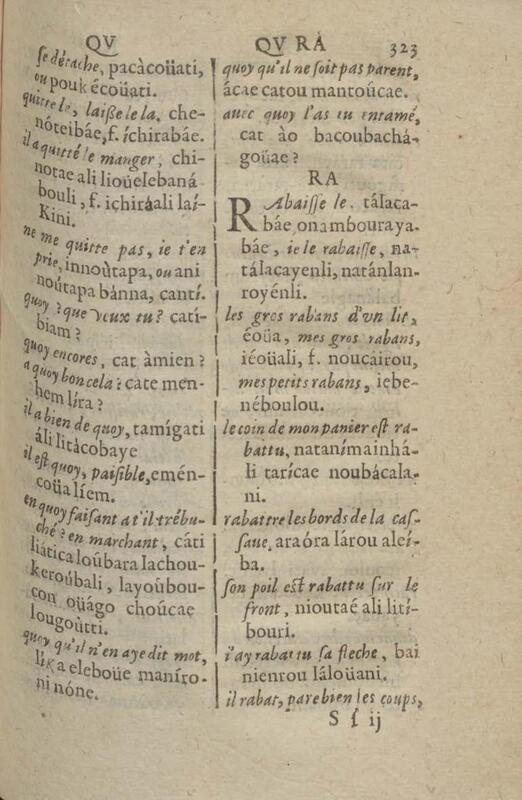 QV
se détache, pacàcoüati,
ou pouk écoüati.
quitte le, laiße le la, che-
nóteibáe, f. íchirabáe.
il a quitté le manger, chi-
notae ali lioüelebaná
bouli, f. ichiráali laí-
Kini.
ne me quitte pas, ie t'en
prie, innoùtapa, ou ani
noútapa bánna, cantí.
quoy ? que veux tu ? catí-
biam ?
quoy encores, cat àmien ?
a quoy bon cela ? cate men-
hem líra ?
il a bien de quoy, tamígati
áli litàcobaye
il est quoy, paisible, emén-
coüa líem.
en quoy faisant a t'il trébu-
ché ? en marchant, cáti
liática loûbara lachou-
keroúbali, layoûbou-
con oüágo choúcae
lougoùtti.
quoy qu'il n'en aye dit mot,
líka eleboüe maníro-
ni nóne.
QV RA 323
quoy qu'il ne soit pas parent,
ácae catou mantoúcae.
auec quoy l'as tu entamé,
cat ào bacoubachá-
goüae ?
RA
RAbaisse le. tálaca-
báe, onambouraya-
báe, ie le rabaisse, na-
tálacayenli, natánlan-
royénli.
les gros rabans d'vn lit,
éoüa, mes gros rabans,
iéoüali, f. noucairou,
mes petits rabans, iebe-
néboulou.
le coin de mon panier est ra-
battu, natanímainhá-
li tarícae noubácala-
ni.
rabattre les bords de la cas-
saue, araóra lárou aleí-
ba.
son poil est rabattu sur le
front, nioutaé ali lití-
bouri.
i'ay rabattu sa fleche, bai
nienrou láloüani.
il rabat, pare bien les coups,
S ſ ij